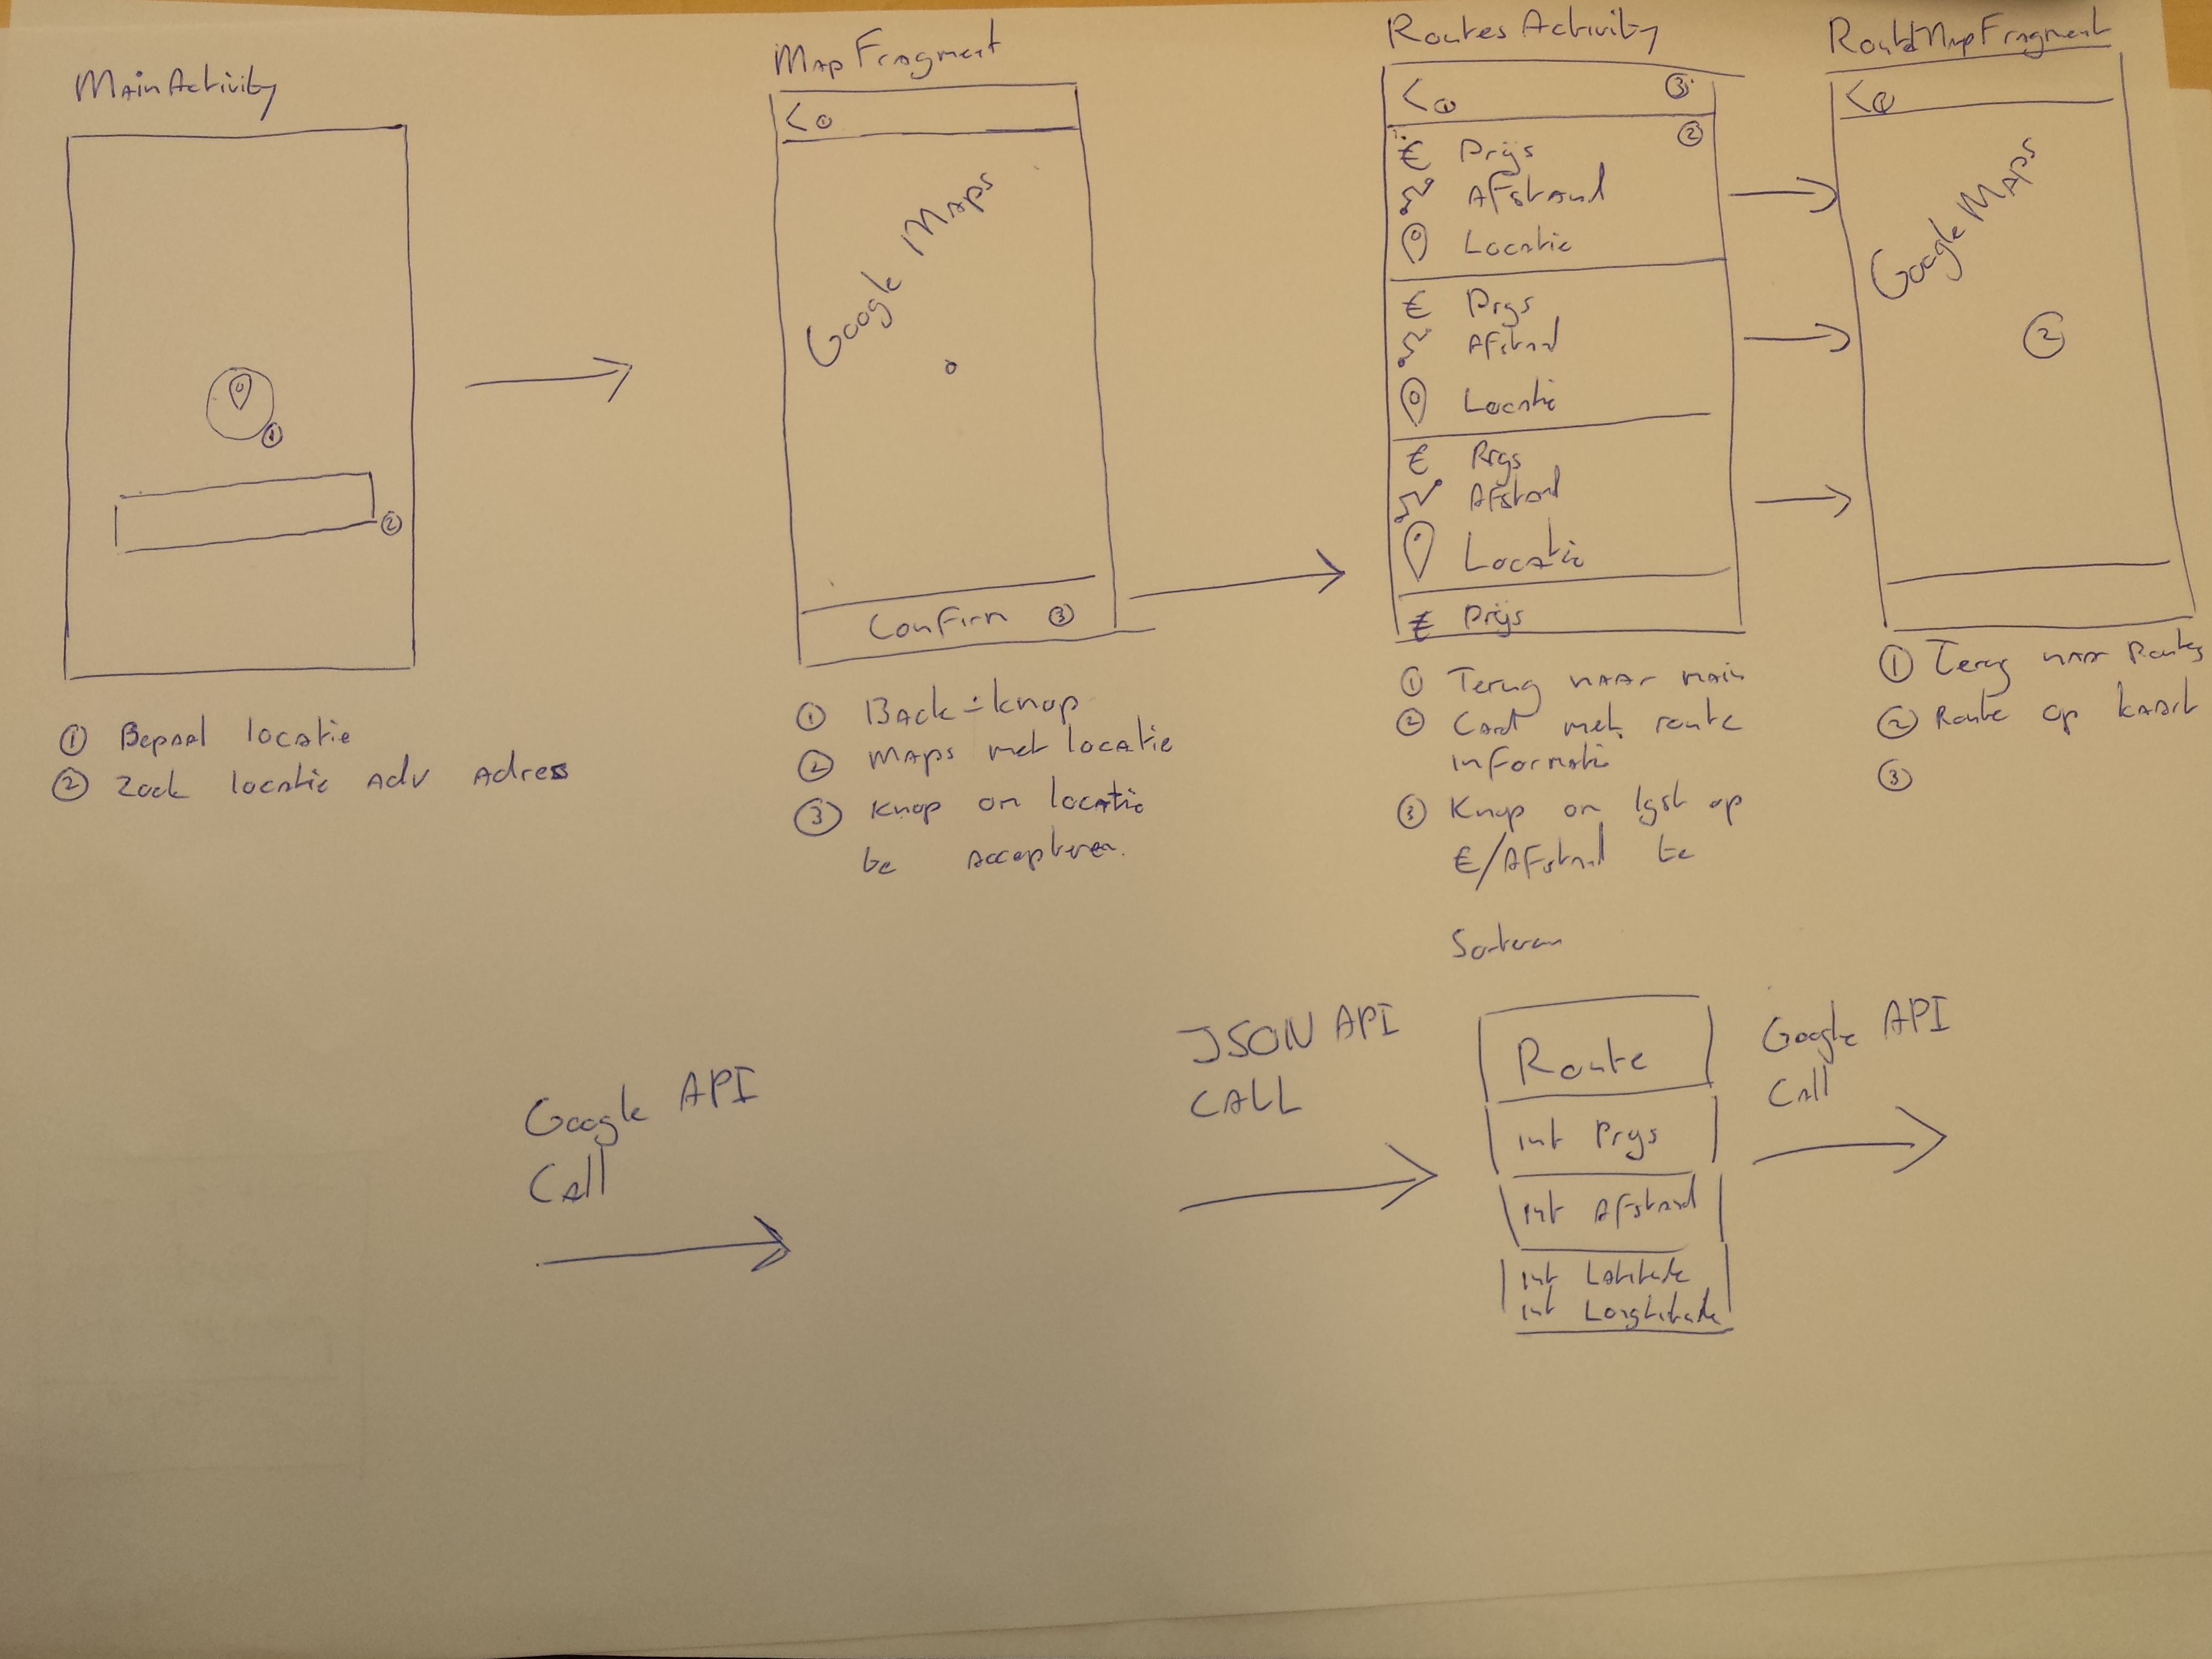 MainActivity
① Bepaal locatie
② Zoek locatie adv adres
MapFragment
< ①
Google Maps
Confirm ③
① Back-knop
② Maps met locatie
③ Knop om locatie
te accepteren.
RoutesActivity
< ① ③
②
€ Prijs
Afstand
Locatie
€ Prijs
Afstand
Locatie
€ Prijs
Afstand
Locatie
€ Prijs
① Terug naar main
② Card met route
informatie
③ Knop om lijst op
€/Afstand te
Sorteren
RouteMapFragment
< ①
Google Maps
②
① Terug naar Routes
② Route op kaart
③
Google API
Call
JSON API
CALL
Route
int Prijs
int Afstand
int Latitude
int Longtitude
Google API
Call